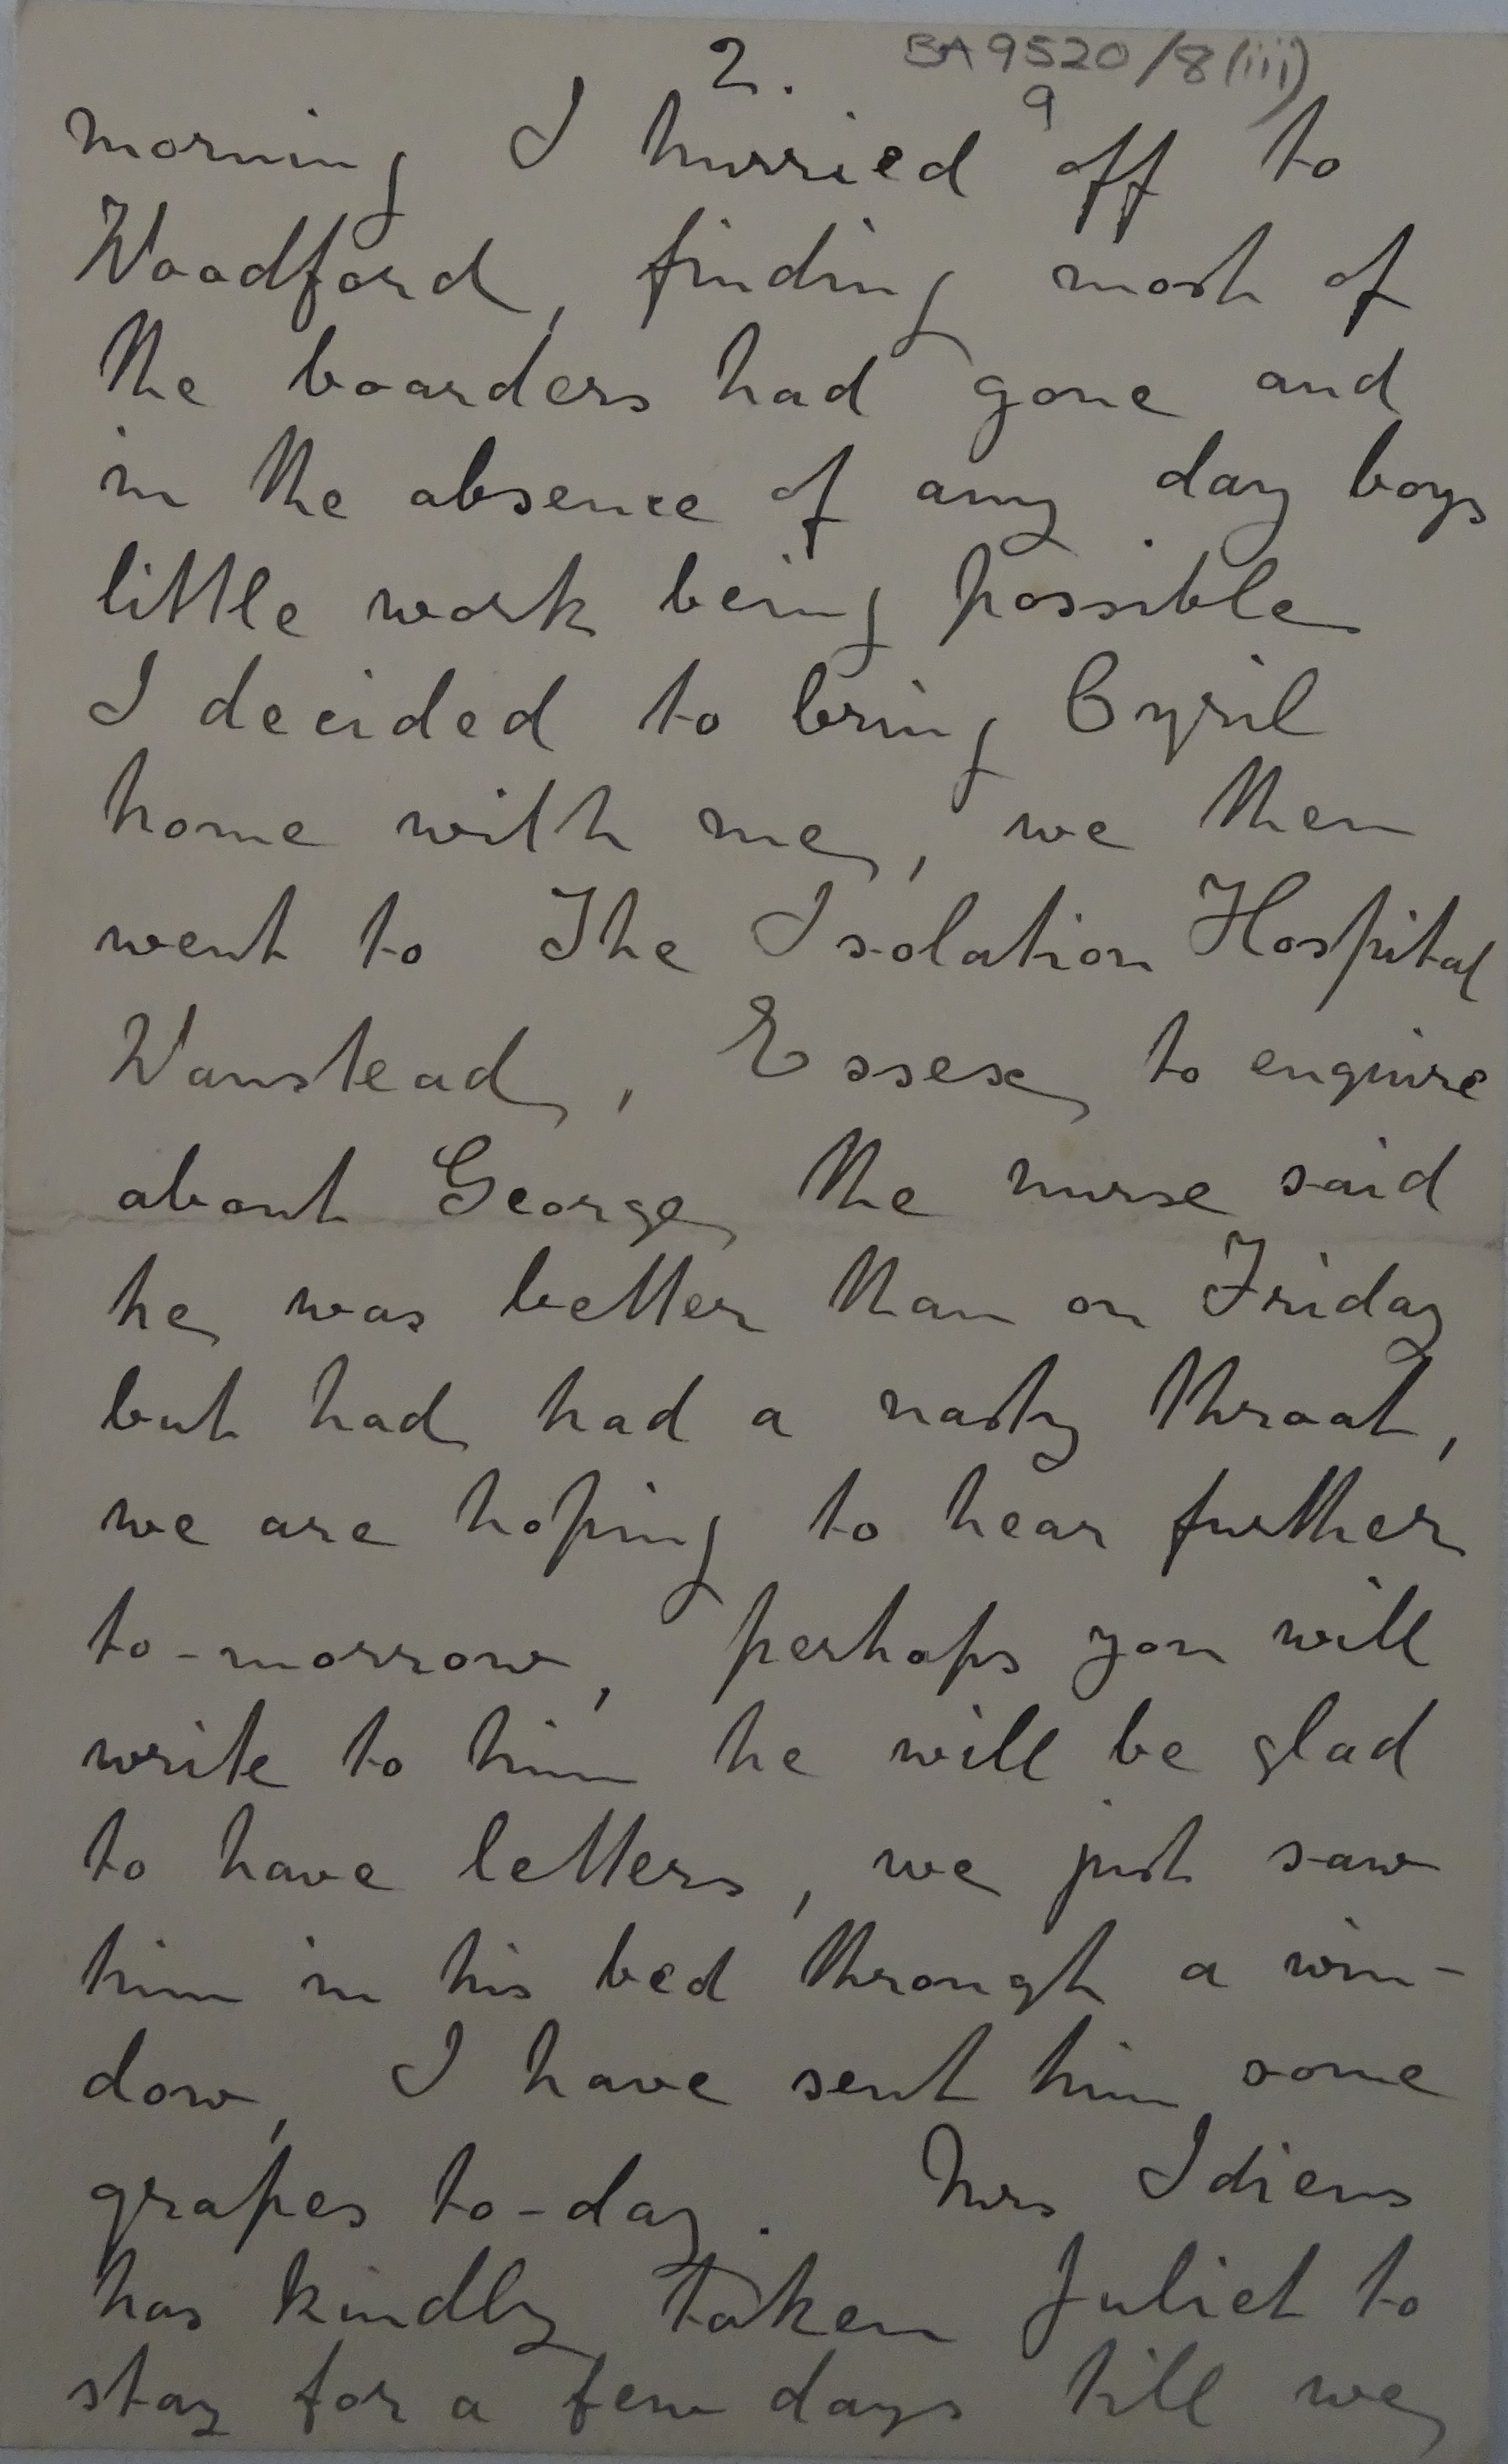 2. BA9520/8(iii)
9
morning I hurried off to
Woodford, finding most of
the boarders had gone and
in the absence of any day boys
little work being possible
I decided to bring Cyril
home with me, we then
went to The Isolation Hospital
Wanstead, Essex to enquire
about George, the nurse said
he was better than on Friday
but had had a nasty throat,
we are hoping to hear further
to-morrow, perhaps you will
write to him he will be glad
to have letters, we just saw
him in his bed through a win-
dow, I have sent him some
grapes to-day. Mrs Idiens
has kindly taken Juliet to
stay for a few days till we